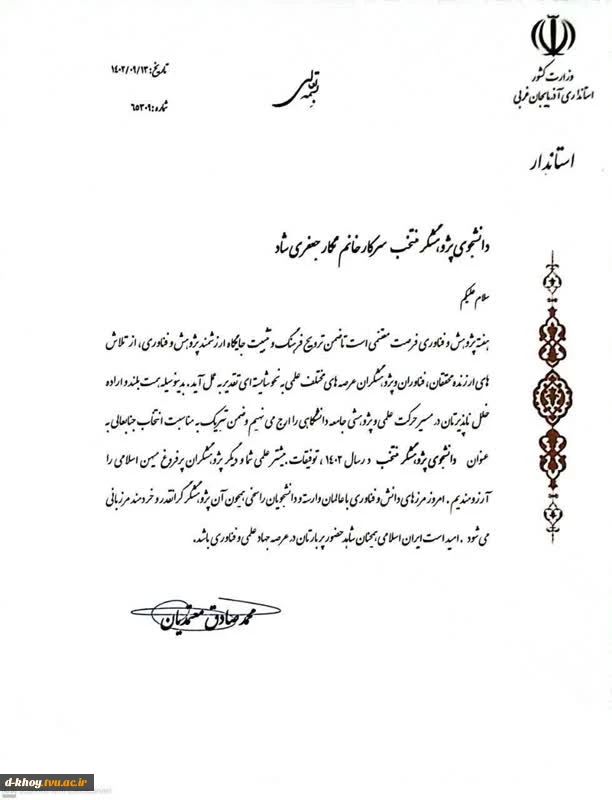 وزارت کشور
استانداری آذربایجان غربی
استاندار
بسمه تعالی
تاریخ: ۱۴۰۲/۰۹/۱۳
شماره: ۶۵۳۰۹
دانشجوی پژوهشگر منتخب سرکار خانم نگار جعفری شاد
سلام علیکم
هفته پژوهش و فناوری فرصت مغتنمی است تا ضمن ترویج فرهنگ و تثبیت جایگاه ارزشمند پژوهش و فناوری، از تلاش
های ارزنده محققان، فناوران و پژوهشگران عرصه های مختلف علمی به نحو شایسته ای تقدیر به عمل آید. بدینوسیله همت بلند و اراده
خلل ناپذیرتان در مسیر حرکت علمی و پژوهشی جامعه دانشگاهی را ارج می نهیم و ضمن تبریک به مناسبت انتخاب جنابعالی به
عنوان دانشجوی پژوهشگر منتخب در سال ۱۴۰۲، توفیقات بیشتر علمی شما و دیگر پژوهشگران پرفروغ میهن اسلامی را
آرزومندیم. امروز مرزهای دانش و فناوری با عالمان وارسته و دانشجویان راسخی همچون آن پژوهشگر گرانقدر و خردمند مرزبانی
می شود. امید است ایران اسلامی همچنان شاهد حضور پربارتان در عرصه جهاد علمی و فناوری باشد.
محمد صادق معتمدیان
d-khoy.tvu.ac.ir